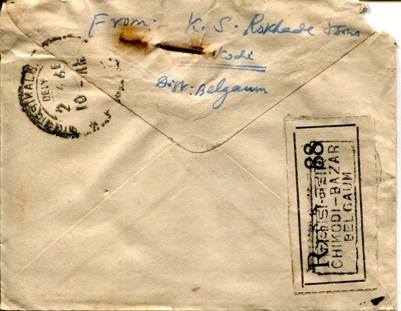 From: K. S. Rokhade Sons
kodi
Dist: Belgaum
DELY
10-
R 88
CHIKODI-BAZAR
BELGAUM